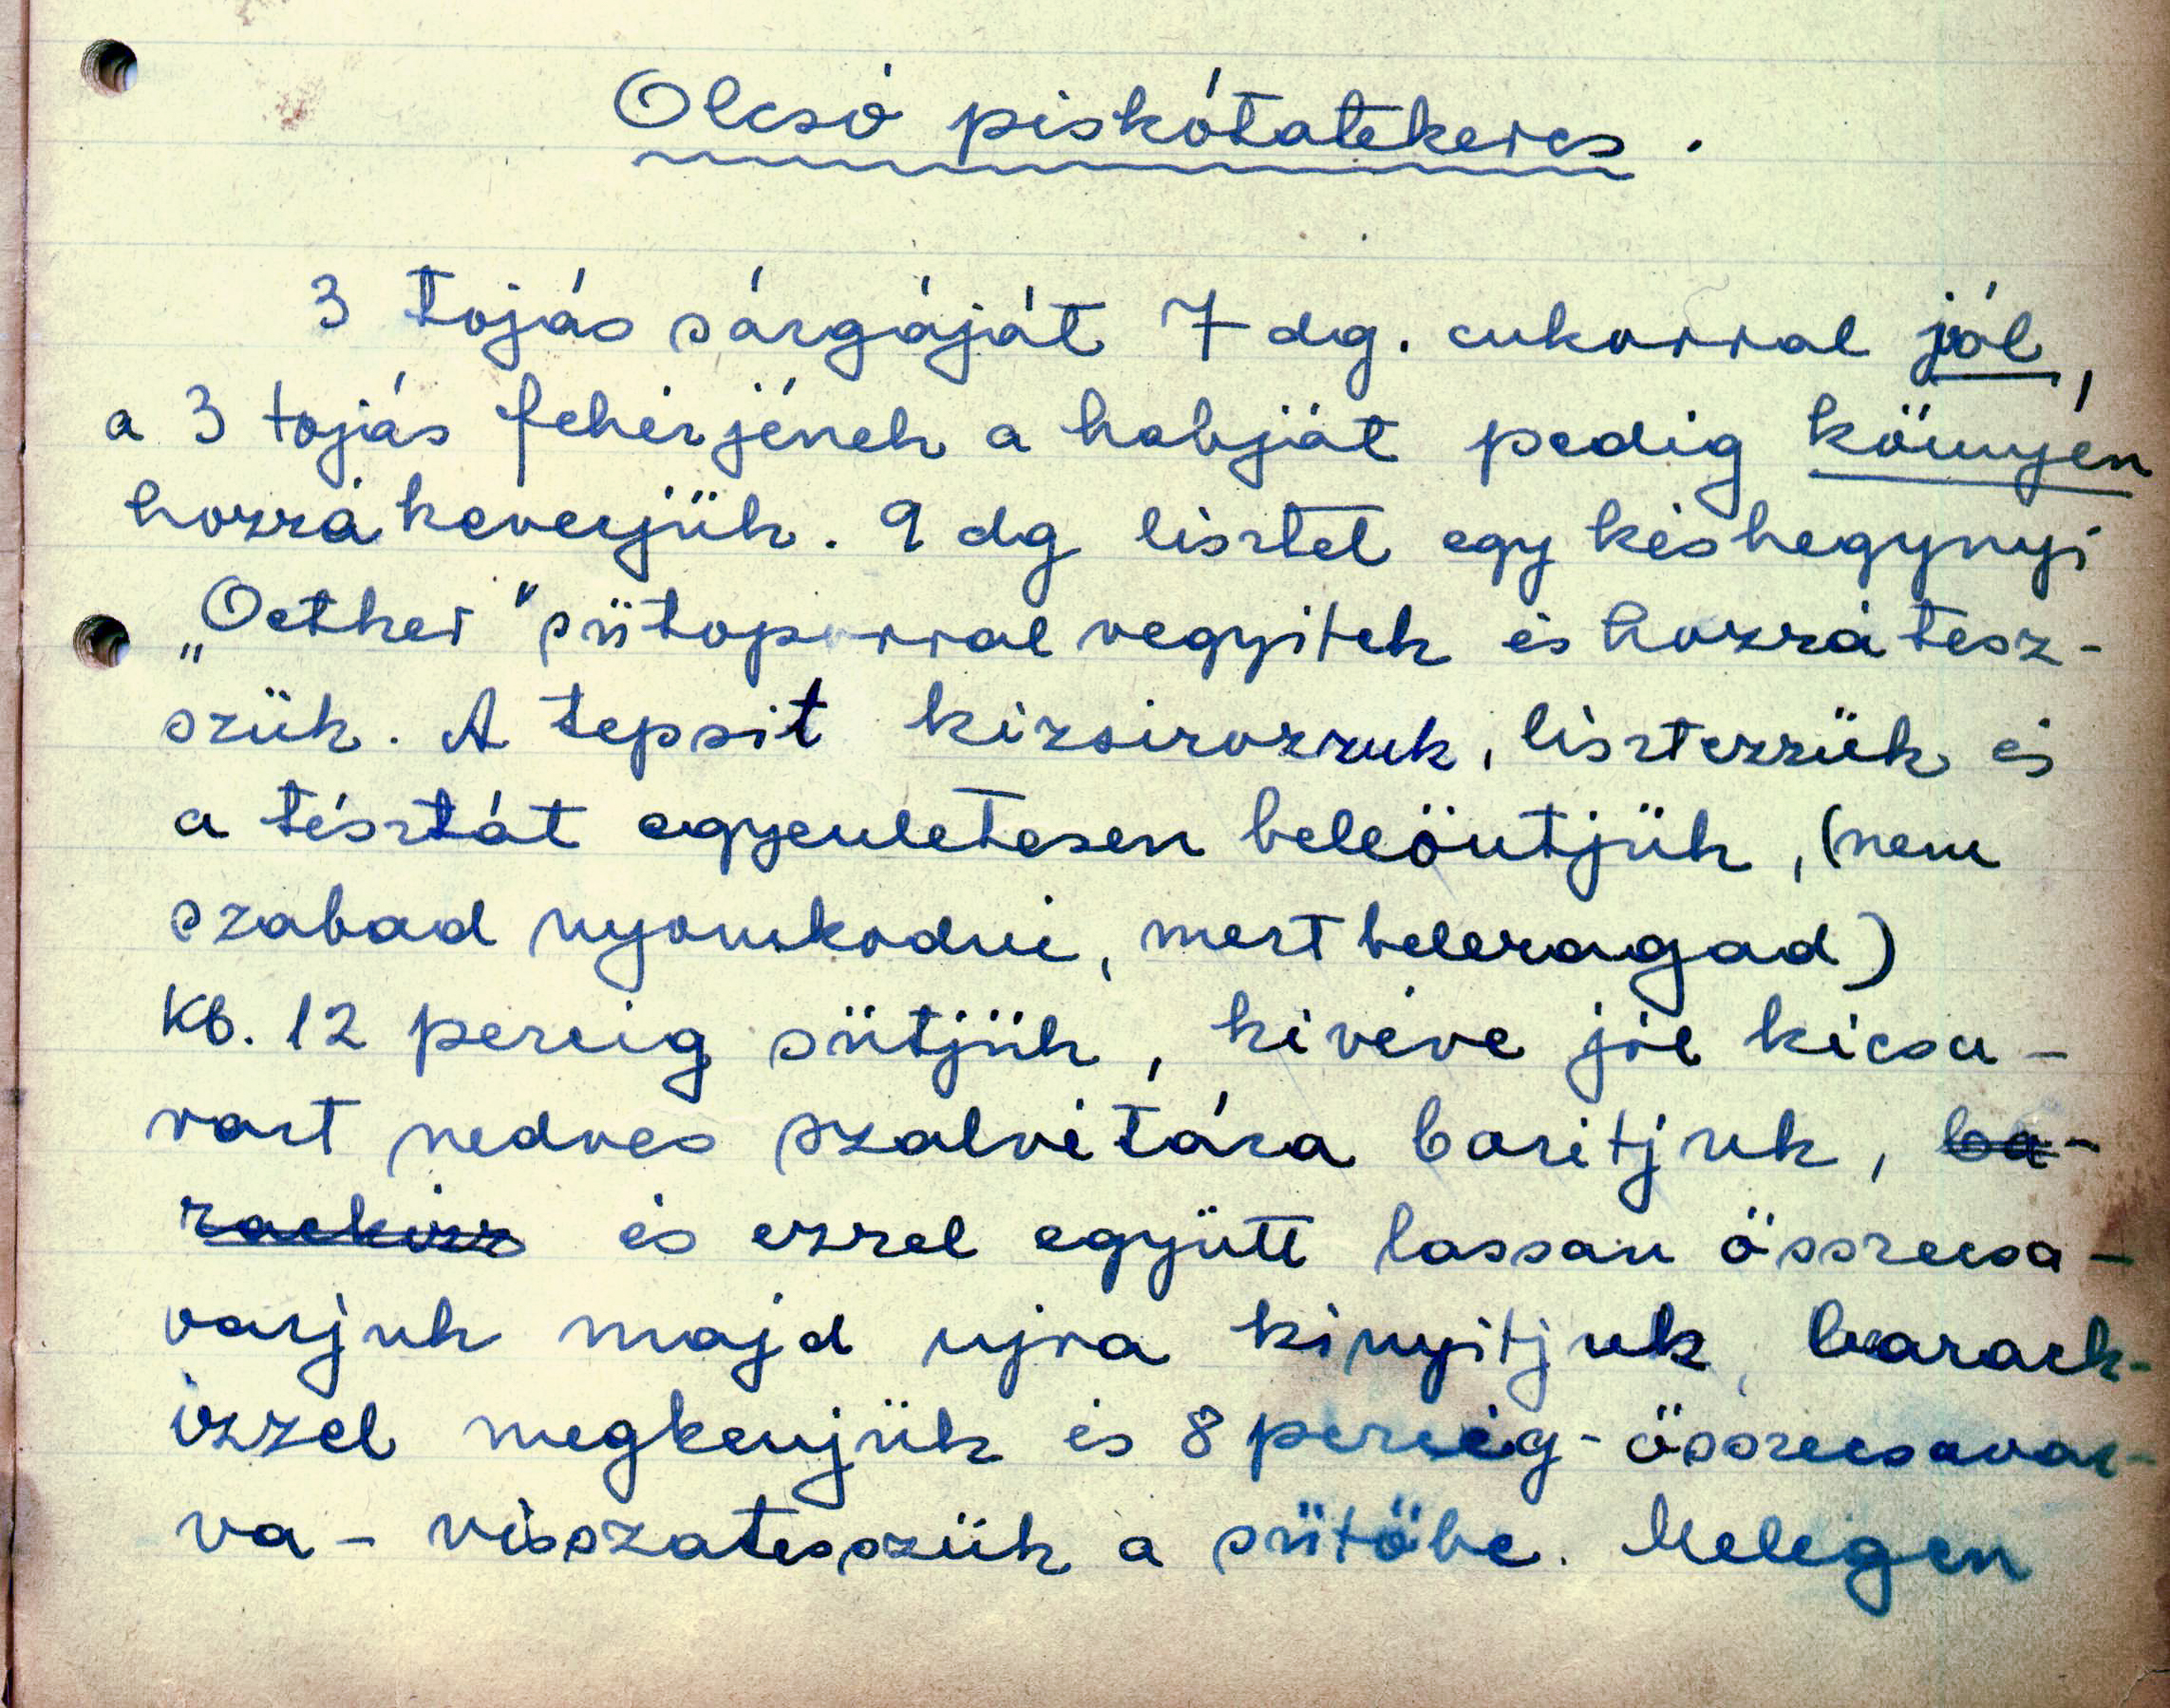 Olcsó piskótatekercs.
3 tojás sárgáját 7 dg. cukorral jól,
a 3 tojás fehérjének a habját pedig könnyén
hozzákeverjük. 9 dg lisztet egy késhegynyi
„Oetker" sütoporral vegyitek és hozzá tesz-
szük. A tepsit kizsirozzuk, lisztezzük és
a tésztát egyenletesen beleöntjük, (nem
szabad nyomkodni, mert beleragad)
Kb. 12 percig sütjük, kivéve jól kicsa-
vart nedves szalvétára boritjuk, ba-
rackizz és ezzel együtt lassan összecsa-
varjuk majd ujra kinyitjuk, barack-
izzel megkenjük és 8 percig - összecsavar-
va - visszatesszük a sütőbe. Melegen